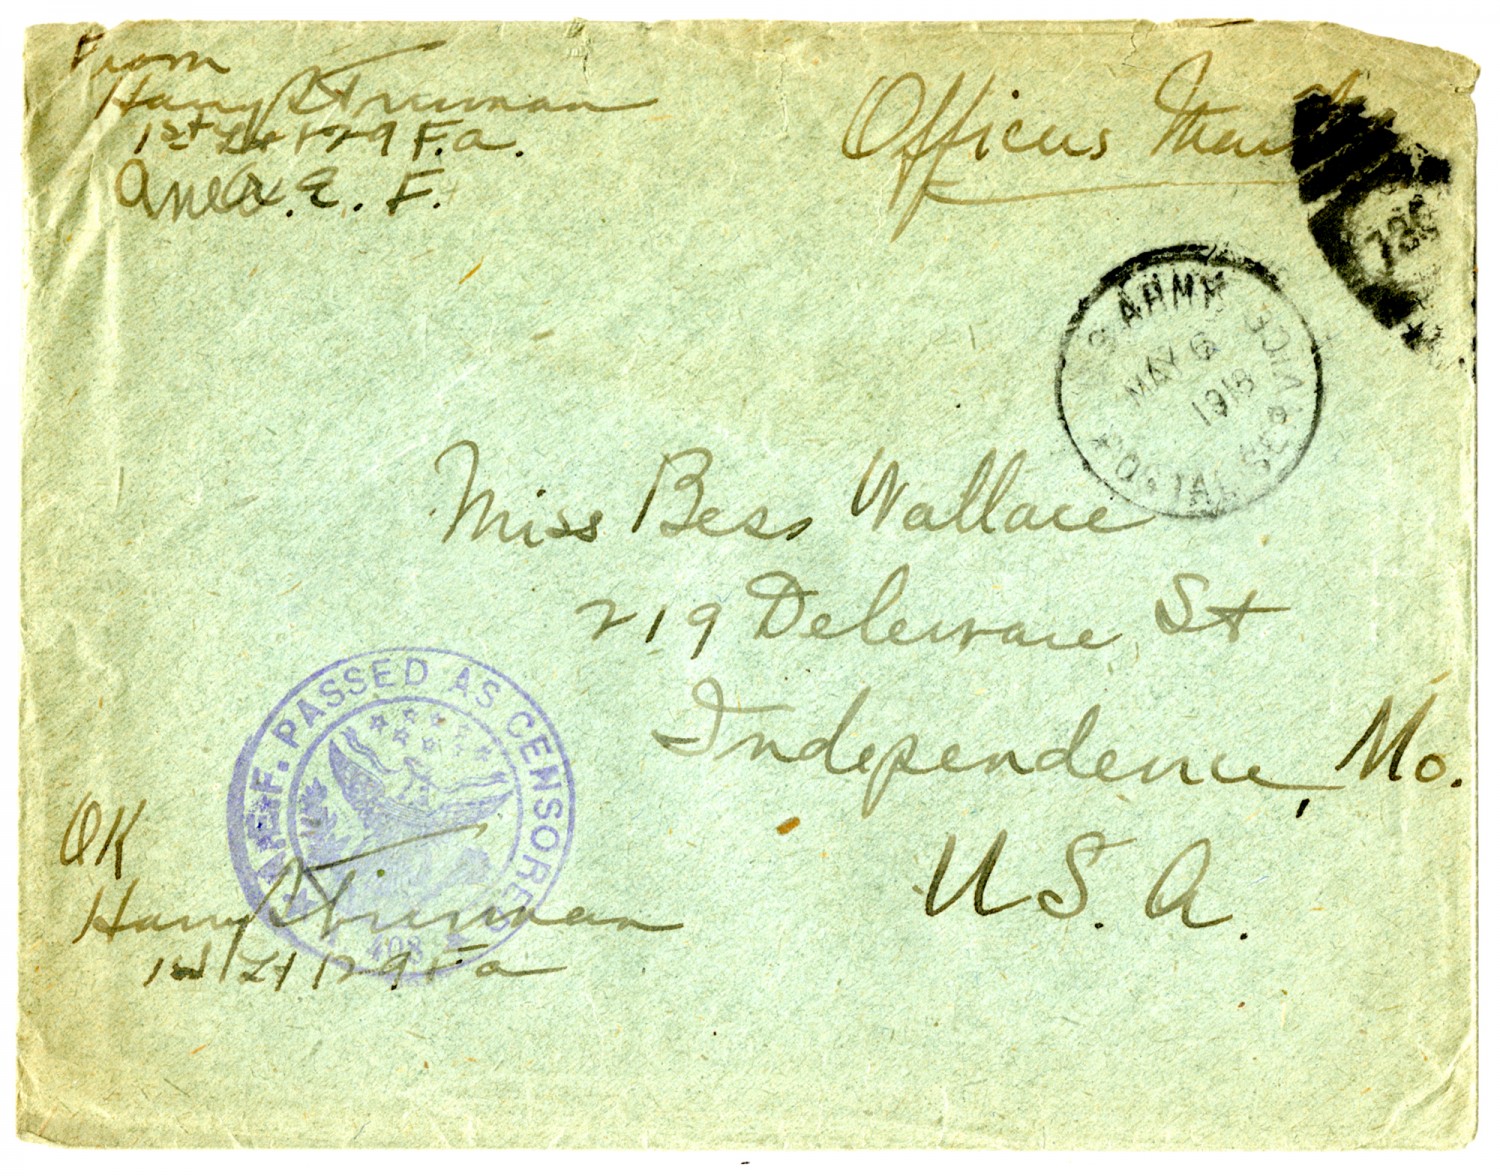 From
Harry S Truman
1st Lt 129 F.A.
Amex. E. F.
Officers Mail
738
U.S. ARMY POSTAL SERVICE
MAY 6
1918
Miss Bess Wallace
219 Deleware St
Independence, Mo.
U.S.A.
A.E.F. PASSED AS CENSORED
408
OK
Harry S Truman
1st Lt 129 F a